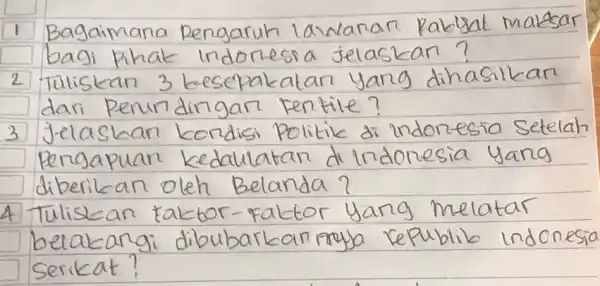 1 Bagaimana Pengaruh lawanan Rakyat makasar
bagi Pihak Indonesia jelaskan ?
2 Tuliskan 3 kesepakatan yang dihasilkan
dari Perundingan renville ?
3 Jelaskan kondisi Politik di indonesia setelah
Pengapuan kedaulatan di Indonesia yang
diberikan oleh Belanda ?
4 Tuliskan faktor-faktor yang melatar
belakangi dibubarkan nya republik indonesia
serikat ?